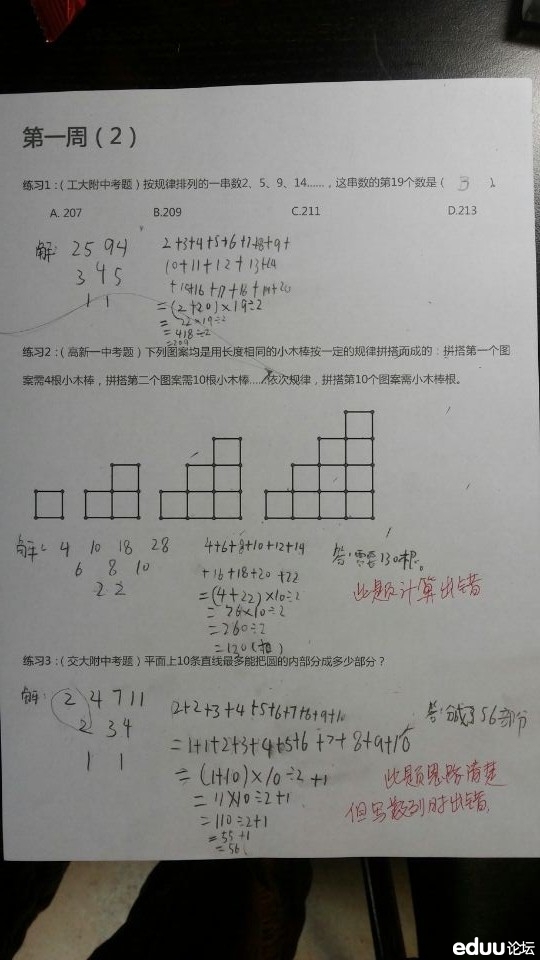 第一周（2）
练习1：（工大附中考题）按规律排列的一串数2、5、9、14……，这串数的第19个数是（ 3 ）
A. 207 B.209 C.211 D.213
解: 2 5 9 4
3 4 5
1 1
2+3+4+5+6+7+8+9+
10+11+12+13+14
+15+16+17+18+19+20
=(2+20)×19÷2
=22×19÷2
=418÷2
=209
练习2：（高新一中考题）下列图案均是用长度相同的小木棒按一定的规律拼搭而成的：拼搭第一个图
案需4根小木棒，拼搭第二个图案需10根小木棒……依次规律，拼搭第10个图案需小木棒根。
解: 4 10 18 28
6 8 10
2 2
4+6+8+10+12+14
+16+18+20+22
=(4+22)×10÷2
=26×10÷2
=260÷2
=130(根)
答:需要130根。
此题计算出错
练习3：（交大附中考题）平面上10条直线最多能把圆的内部分成多少部分？
解: 2 4 7 11
2 3 4
1 1
2+2+3+4+5+6+7+8+9+10
=1+1+2+3+4+5+6+7+8+9+10
=(1+10)×10÷2+1
=11×10÷2+1
=110÷2+1
=55+1
=56
答:分成了56部分
此题思路清楚
但写数列时出错
eduu论坛